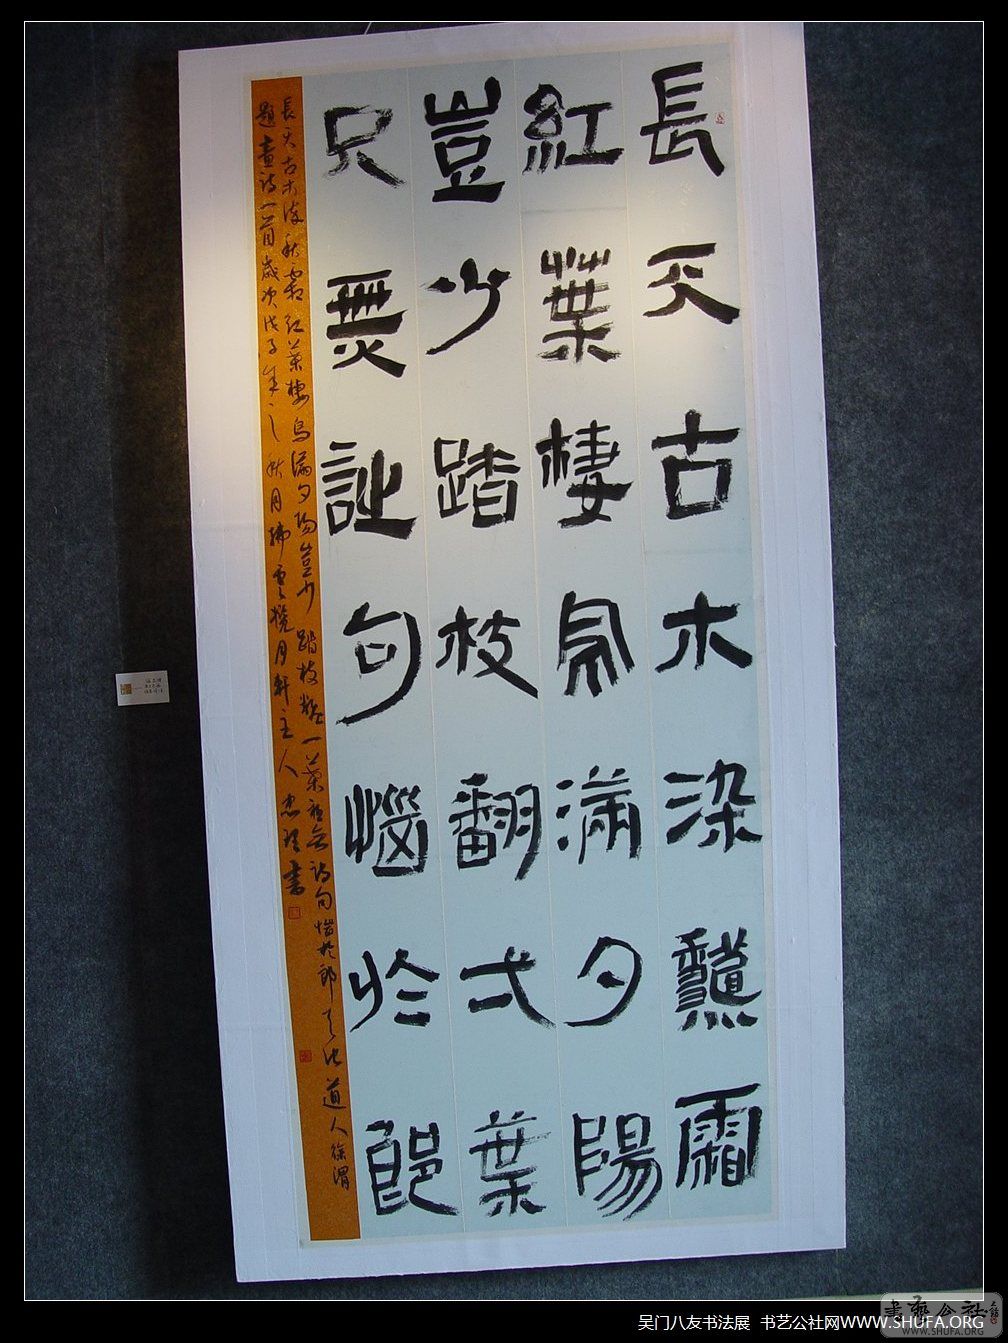 長天古木染龝霜
紅葉棲烏滿夕陽
豈少踏枝翻弌葉
只無詩句惱於郎
長天古木染秋霜紅葉棲烏滿夕陽豈少踏枝翻一葉只無詩句惱於郎天池道人徐渭
題畫詩一首歲次戊子年之秋月拂雲攬月軒主人忠
書
吴门八友书法展 书艺公社网WWW.SHUFA.ORG
书艺公社
WWW.SHUFA.ORG